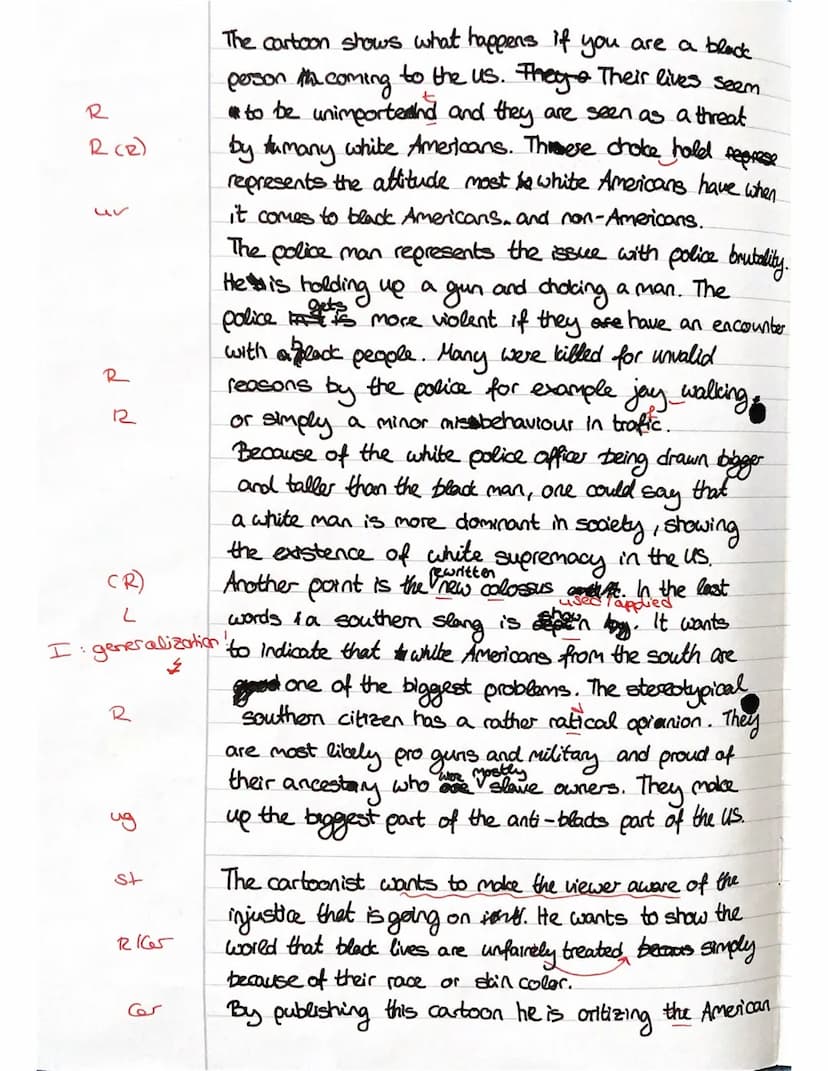 The cartoon shows what happens if you are a black
person coming to the US. Their lives seem
R to be unimportend t and they are seen as a threat
R (R) by many white Americans. These choke hold
represents the attitude most white Americans have when
uv it comes to black Americans. and non-Americans.
The police man represents the issue with police brutality.
He is holding up a gun and choking a man. The
police gets more violent if they have an encounter
with black people. Many were killed for unvalid
R reasons by the police for example jay walking,
R or simply a minor missbehaviour in trafic. f
Because of the white police officer being drawn bigger
and taller than the black man, one could say that
a white man is more dominant in society, showing
the existence of white supremacy in the US.
(R) Another point is the rewritten new colossus. In the last
L words a southern slang is shown used / applied. It wants
I: generalization! to indicate that white Americans from the south are
one of the biggest problems. The stereotypical
R southern citizen has a rather ratical d opinion. They
are most likely pro guns and military and proud of
their ancestary who were mostly slave owners. They make
ug up the biggest part of the anti-blacks part of the US.
St The cartoonist wants to make the viewer aware of the
injustice that is going on. He wants to show the
R/Gr world that black lives are unfairely treated simply
because of their race or skin color.
Gr By publishing this cartoon he is critizing the American